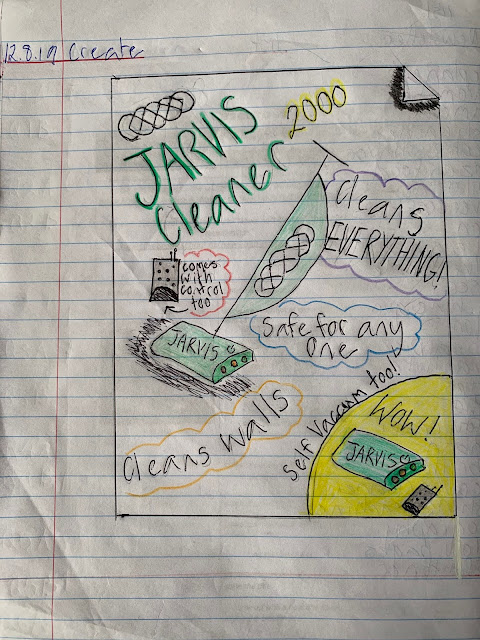 12.8.19 Create
JARVIS
Cleaner 2000
Cleans
EVERYTHING!
comes
with
control
too
Safe for any
one
JARVIS
Cleans Walls
Self Vaccum too!
WOW!
JARVIS